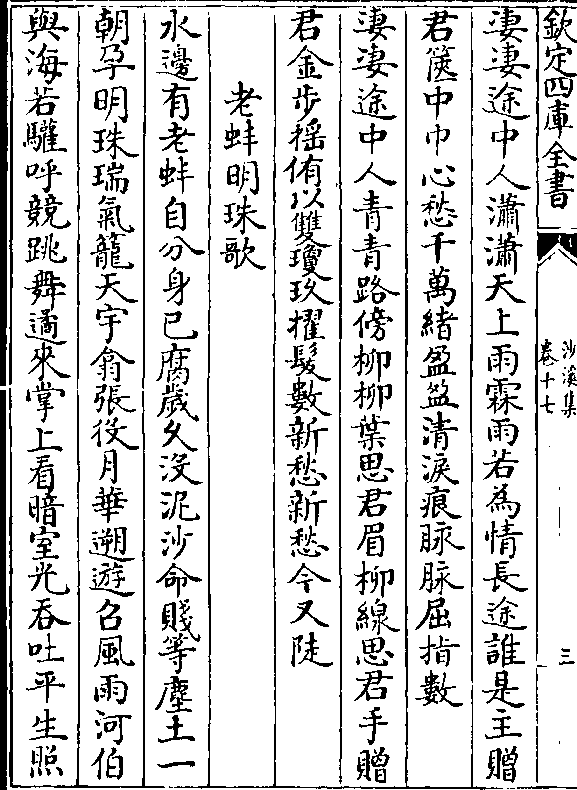 欽定四庫全書
沙溪集
卷十七
三
淒淒途中人瀟瀟天上雨霖雨若為情長途誰是主贈
君篋中巾心愁千萬緒盈盈清淚痕脉脉屈指數
淒淒途中人青青路傍柳柳葉思君眉柳線思君手贈
君金步揺侑以雙瓊玖擢髮數新愁新愁今又陡
老蚌明珠歌
水邊有老蚌自分身已腐歲久沒泥沙命賤等塵土一
朝孕明珠瑞氣籠天宇翕張役月華遡遊召風雨河伯
與海若驩呼競跳舞遹來掌上看暗室光吞吐平生照